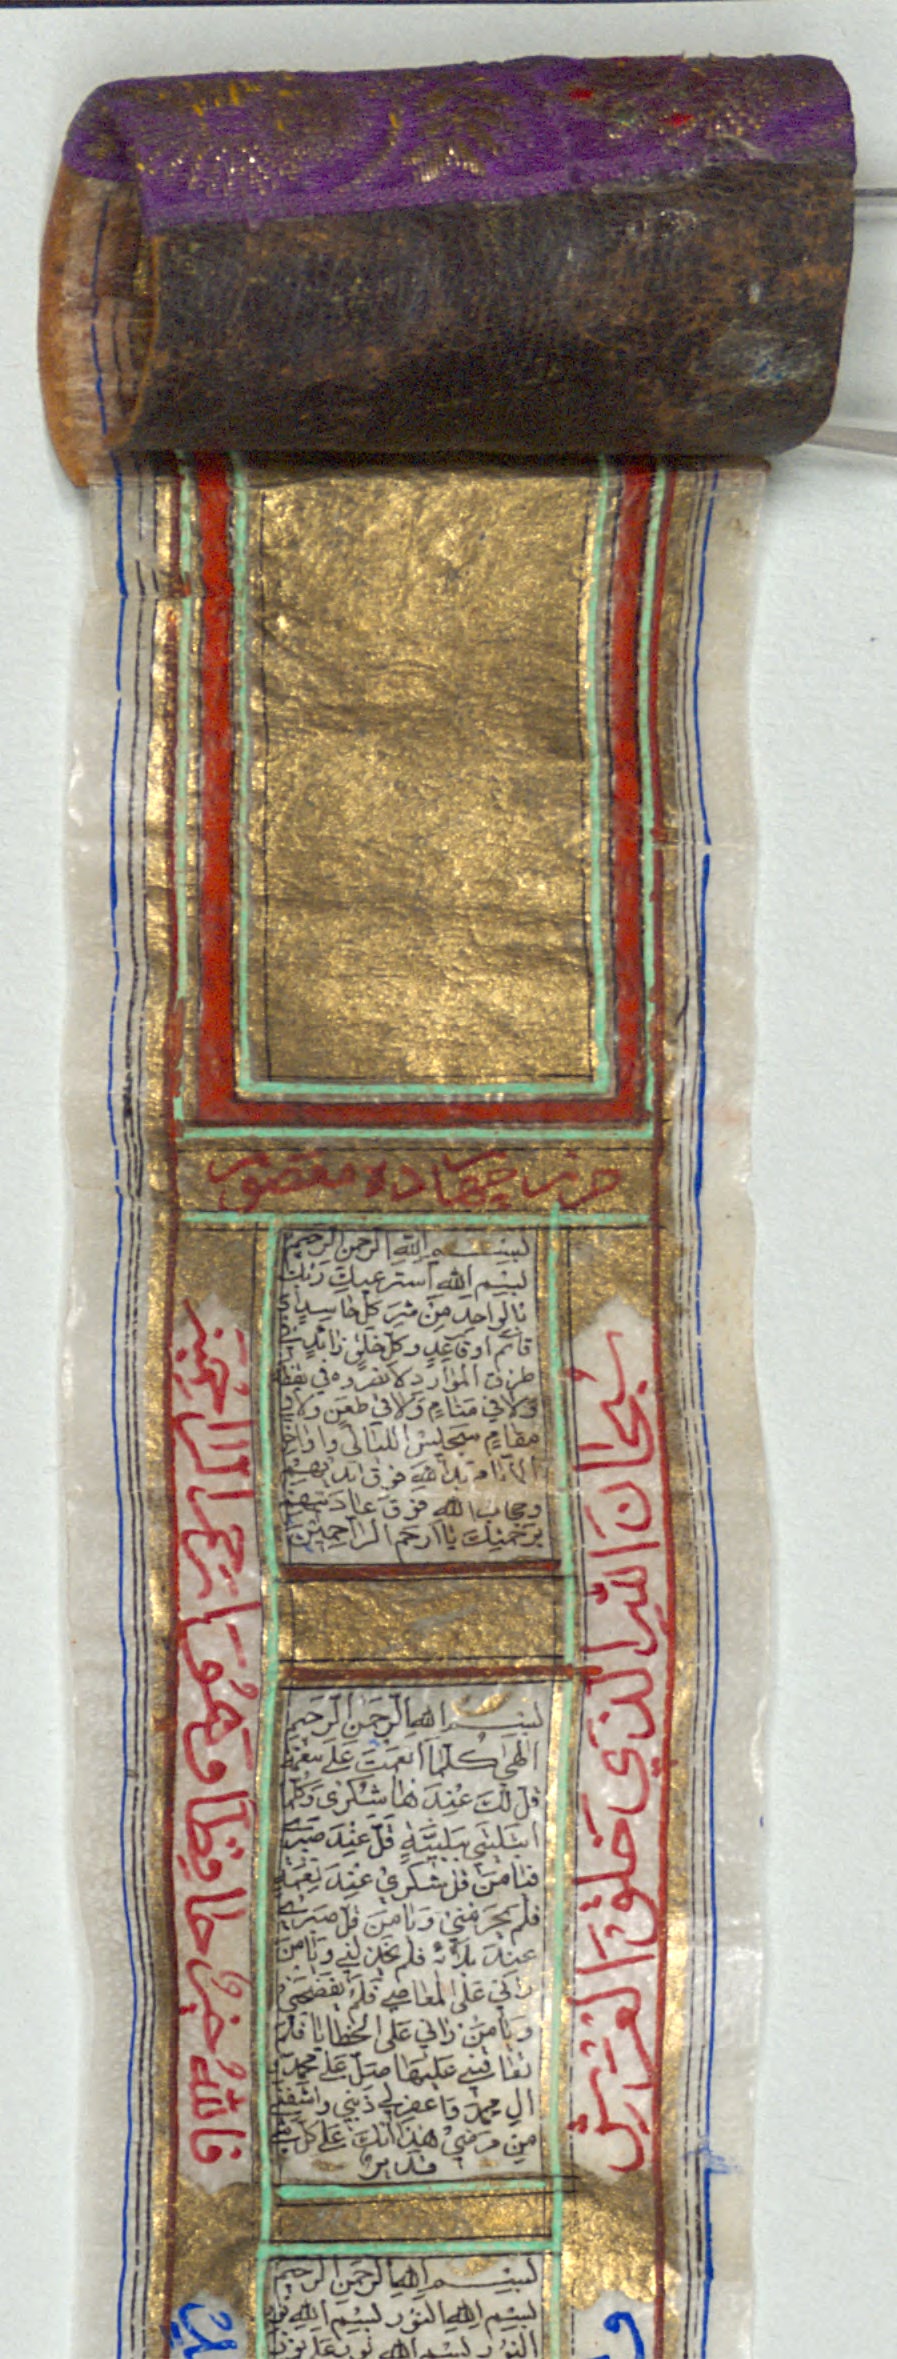 حرز چهارده معصوم
بسم الله الرحمن الرحيم
بسم الله استرعيك ربك
بالواحد من شر كل حاسد
قائم او قاعد وكل خلق زائد
طرق الموارد لا تضروه في يقظة
ولا في منام ولا في ظعن ولا في
مقام سجيس الليالي واواخر
الايام يد الله فوق ايديهم
وحجاب الله فوق عاديتهم
برحمتك يا ارحم الراحمين
بسم الله الرحمن الرحيم
الهي كلما انعمت علي بنعمة
قل لك عندها شكري وكلما
ابتليتني ببلية قل عند صبري
فيا من قل شكري عند نعمته
فلم يحرمني ويا من قل صبري
عند بلائه فلم يخذلني ويا من
رآني على المعاصي فلم يفضحني
ويا من رآني على الخطايا فلم
يعاقبني عليها صل على محمد
ال محمد واغفر لي ذنبي واشفني
من مرضي هذا انك على كل
قدير
بسم الله الرحمن الرحيم
بسم الله النور بسم الله
النور بسم الله نور على نور
سُبحان الله الذي خلق العرش
فالله خير حافظا وهو ارحم الراحمين